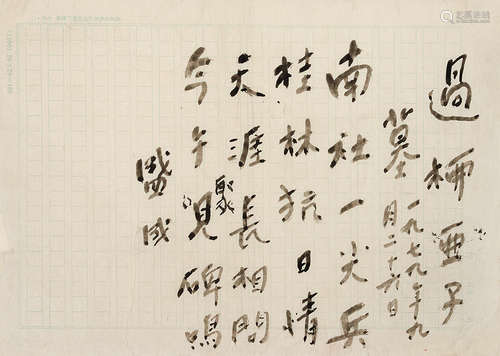 過柳亜子
墓
一九七九年九
月二十六日
南社一尖兵
桂林抗日情
天涯長相問
聚
今午見碑鳴
盛成